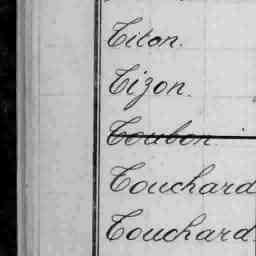 Titon.
Tizon.
Toubon.
Touchard
Touchard.